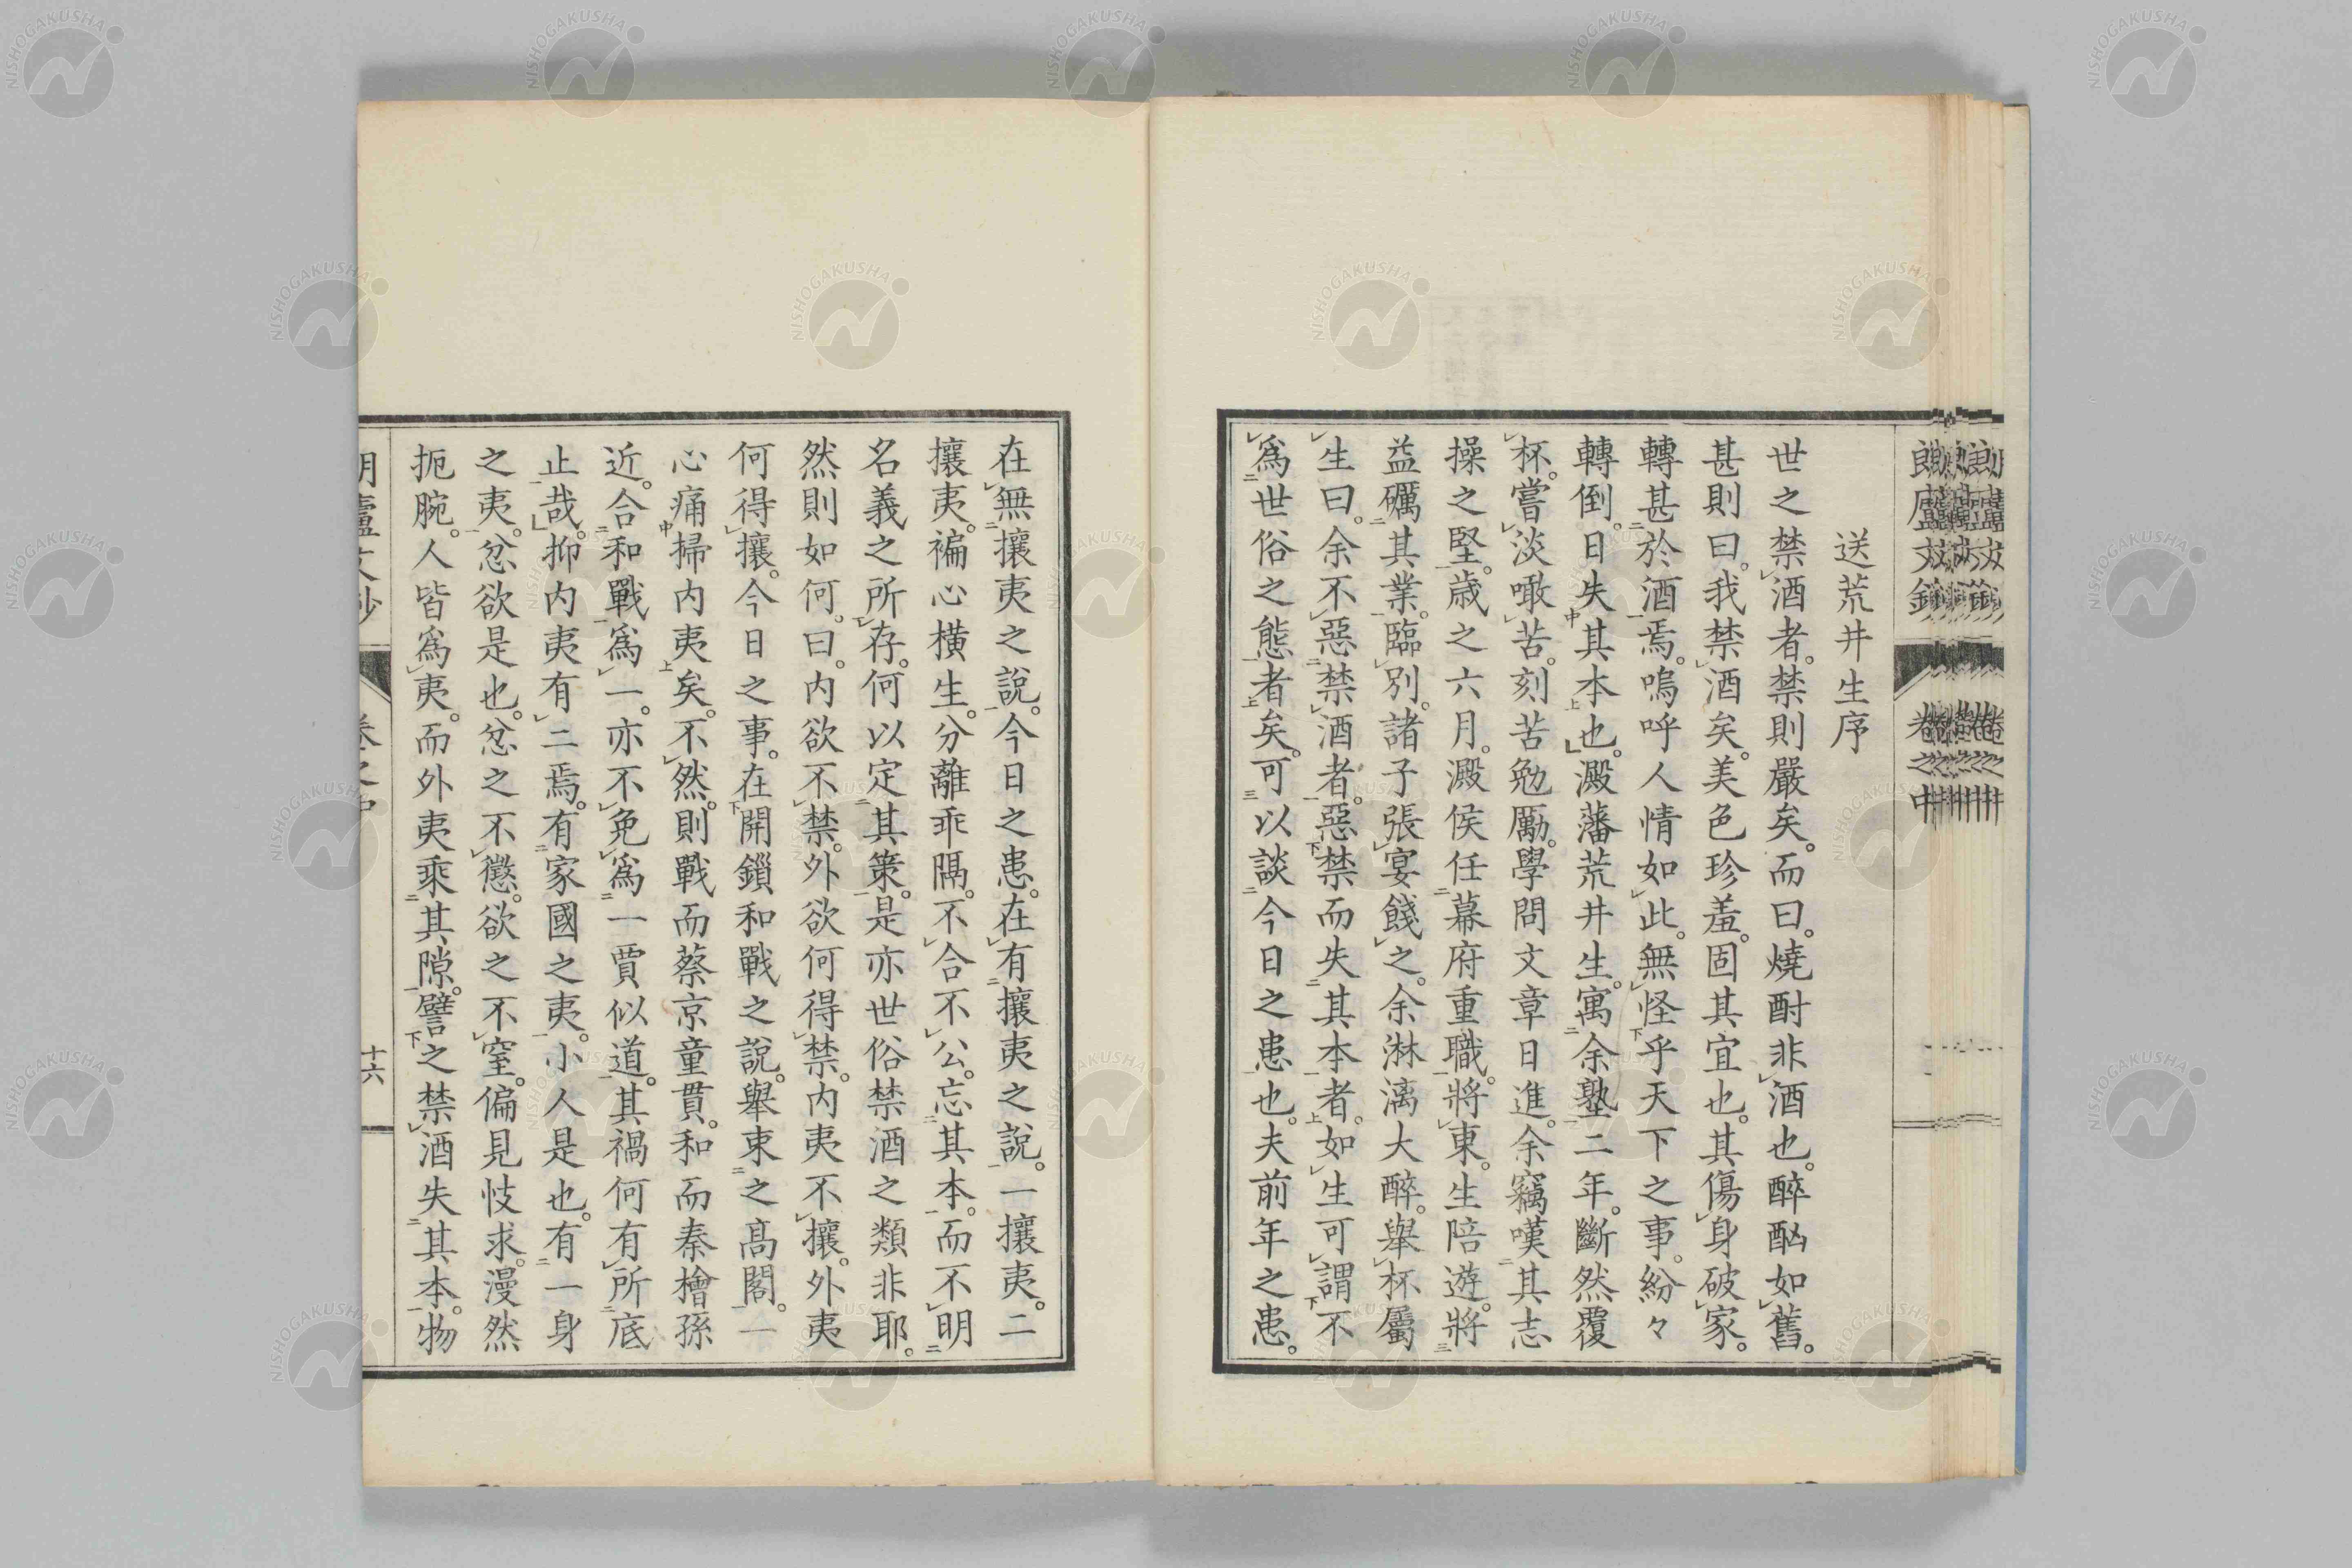 送荒井生序
世之禁酒者。禁則嚴矣。而曰。燒酎非酒也。醉酗如舊。
甚則曰。我禁酒矣。美色珍羞。固其宜也。其傷身破家。
轉甚於酒焉。嗚呼人情如此。無怪乎天下之事。紛々
轉倒。日失其本也。澱藩荒井生。寓余塾二年。斷然覆
杯。嘗淡噉苦。刻苦勉勵。學問文章日進。余竊嘆其志
操之堅。歲之六月。澱侯任幕府重職。將東。生陪遊。將
益礪其業。臨別。諸子張宴餞之。余淋漓大醉。舉杯屬
生曰。余不惡禁酒者。惡禁而失其本者。如生可謂不
爲世俗之態者矣。可以談今日之患也。夫前年之患。
在無攘夷之說。今日之患。在有攘夷之說。一攘夷。二
攘夷。褊心橫生。分離乖隔。不合不公。忘其本。而不明
名義之所存。何以定其策。是亦世俗禁酒之類非耶。
然則如何。曰。内欲不禁。外欲何得禁。内夷不攘。外夷
何得攘。今日之事。在開鎖和戰之說。舉束之高閣。一
心痛掃内夷矣。不然。則戰而蔡京童貫。和而秦檜孫
近。合和戰爲一。亦不免爲一賈似道。其禍何有所底
止哉。抑内夷有二焉。有家國之夷。小人是也。有一身
之夷。忿欲是也。忿之不懲。欲之不窒。偏見忮求。漫然
扼腕。人皆爲夷。而外夷乘其隙。譬之禁酒失其本。物
卷之中
十六
NISHOGAKUSHA